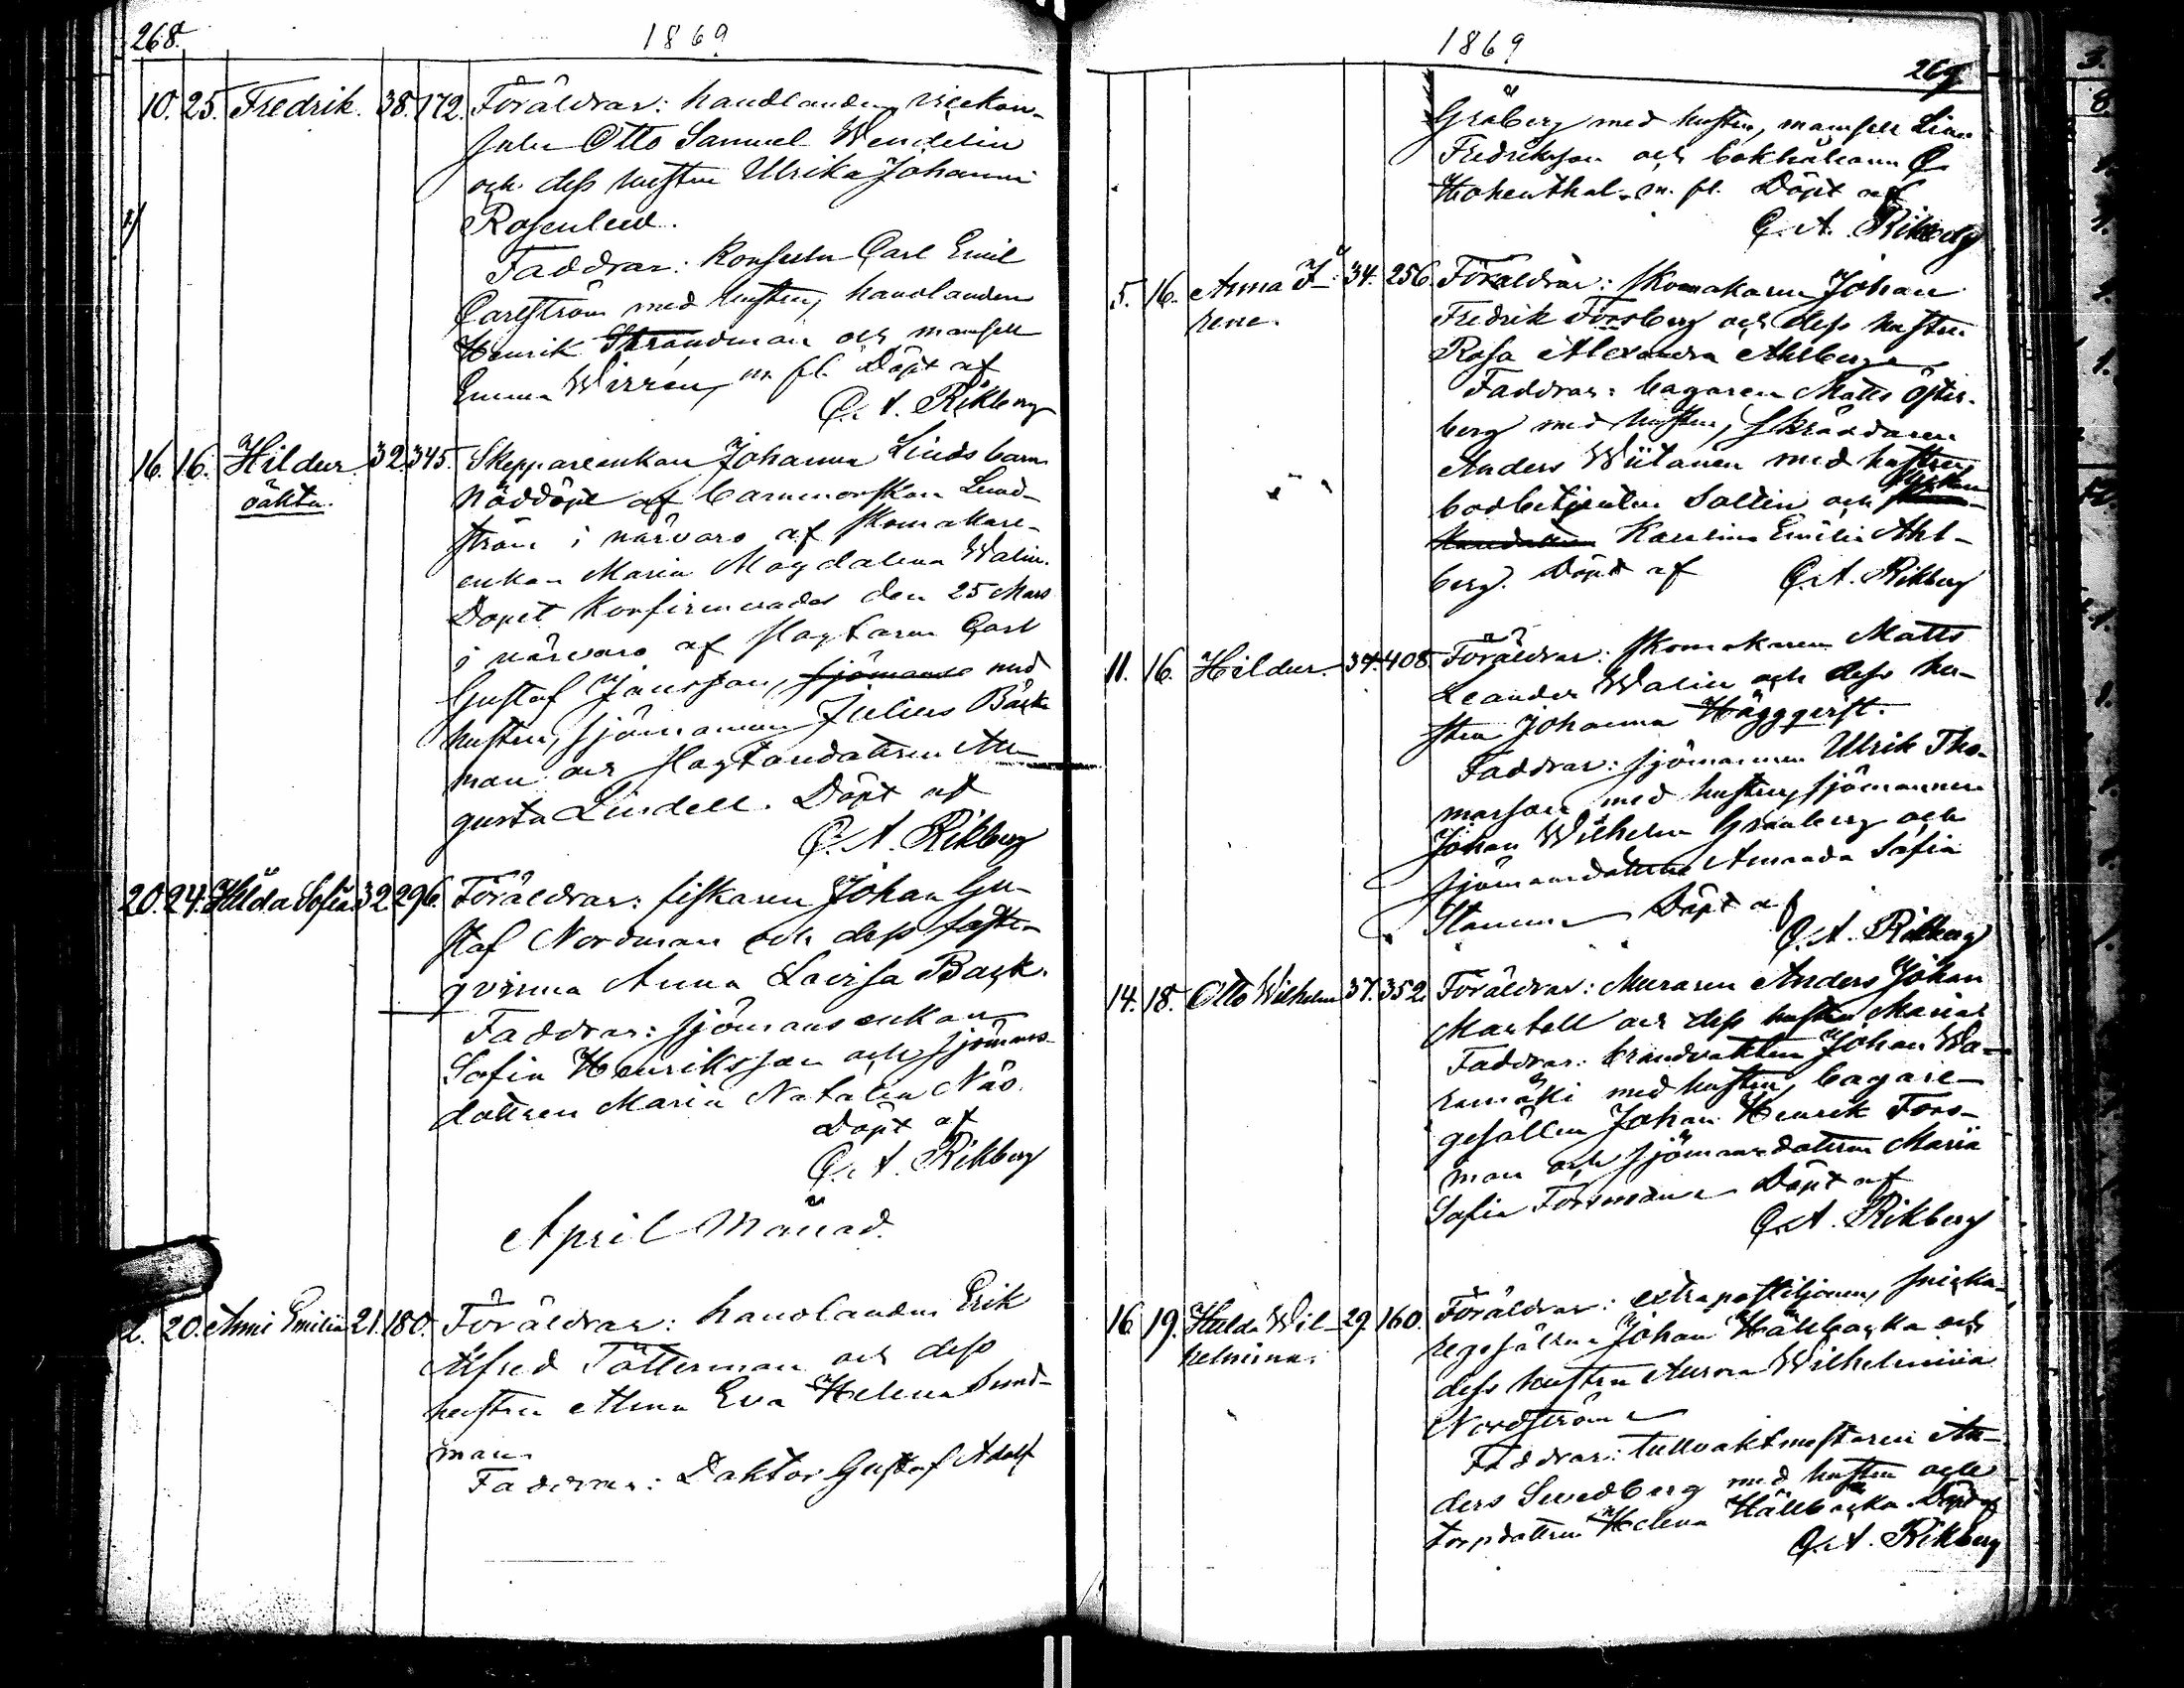 268.
1869
10. 25. Fredrik. 38. 172. Föräldrar: handlanden, vicekon-
suln Otto Samuel Wendelin
och dess hustru Ulrika Johanna
Rosenlew.
Faddrar: Konsuln Carl Emil
Carlström med hustru, handlanden
Henrik Strandman och mamsell
Emma Wirrén, m. fl. Döpt af
C. A. Rikberg
16. 16. Hildur 32. 345. Skeppareenkan Johanna Linds barn
oäkta. Nöddöpt af barnmorskan Lind-
ström i närvaro af skomakare-
enkan Maria Magdalena Walin.
Dopet konfirmerades den 25 Mars
i närvaro af slagtaren Carl
Gustaf Jansson, sjömans med
hustru, sjömannen Julius Back-
man och slagtaredottren Au-
gusta Lindell. Döpt af
C. A. Rikberg
20. 24. Hilda Sofia. 32. 296. Föräldrar: fiskaren Johan Gu-
staf Nordman och dess fäste-
qvinna Anna Lovisa Back.
Faddrar: sjömansenkan
Sofia Henriksson och sjömans-
dottren Maria Natalia Näs.
Döpt af
C. A. Rikberg
April Månad.
2. 20. Anni Emilia 21. 180. Föräldrar: handlanden Erik
Alfred Tötterman och dess
hustru Alma Eva Helena Sund-
man
Faddrar: Doktor Gustaf Adolf
1869
269
Gråberg med hustru, mamsell Lina
Fredriksson och bokhållaren C.
Hohenthal. m. fl. Döpt af
C. A. Rikberg
5. 16. Anna I- 34. 256. Föräldrar: skomakaren Johan
rene. Fredrik Forsberg och dess hustru
Rosa Alexandra Ahlberg
Faddrar: bagaren Matts Öster-
berg med hustru, skräddaren
Anders Wiitanen med hustru,
bodbetjenten Soltin och
Karolina Emilia Ahl-
berg. Döpt af C. A. Rikberg
11. 16. Hildur. 34. 408. Föräldrar: skomakaren Matts
Leander Walin och dess hu-
stru Johanna Häggqvist.
Faddrar: sjömannen Ulrik Tho-
masson med hustru, sjömannen
Johan Wilhelm Granberg och
sjömansdottren Amanda Sofia
Stamm Döpt af
C. A. Rikberg
14. 18. Otto Wilhelm 37. 352. Föräldrar: Muraren Anders Johan
Martell och dess hustru Maria
Faddrar: brandvakten Johan Wa-
renmäki med hustru, bagare-
gesällen Johan Henrik Fors-
man och sjömansdottren Maria
Sofia Forsman Döpt af
C. A. Rikberg
16. 19. Hulda Wil- 29. 160. Föräldrar: extrapostiljonen, snicka-
helmina. regesällen Johan Hällbacka och
dess hustru Aurora Wilhelmina
Nordström
Faddrar: tullvaktmästaren An-
ders Swedberg med hustru och
torpdottren Helena Hällbacka. Döpt af
C. A. Rikberg